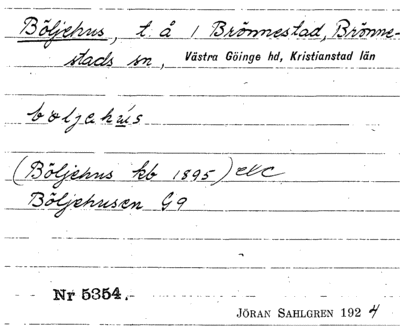 Böljehus, t. å 1 Brönnestad, Brönne-
stads sn, Västra Göinge hd, Kristianstad län
(Böljehus kb 1895) etc
Böljehusen G9
Nr 5354.
JÖRAN SAHLGREN 1924